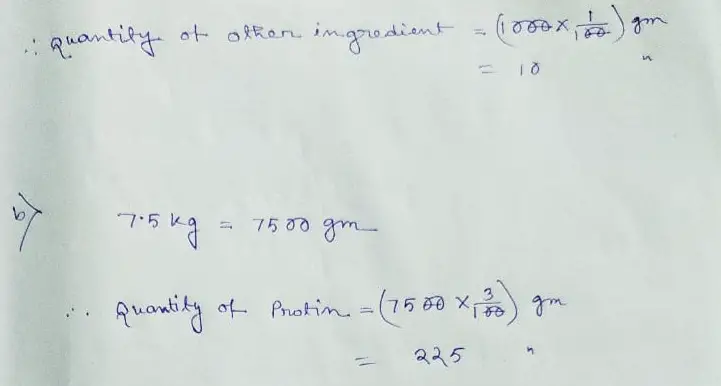 ∴ Quantity of other ingredient = (1000 × 1/100) gm
= 10 "
b) 7.5 kg = 7500 gm
∴ Quantity of Protin = (7500 × 3/100) gm
= 225 "